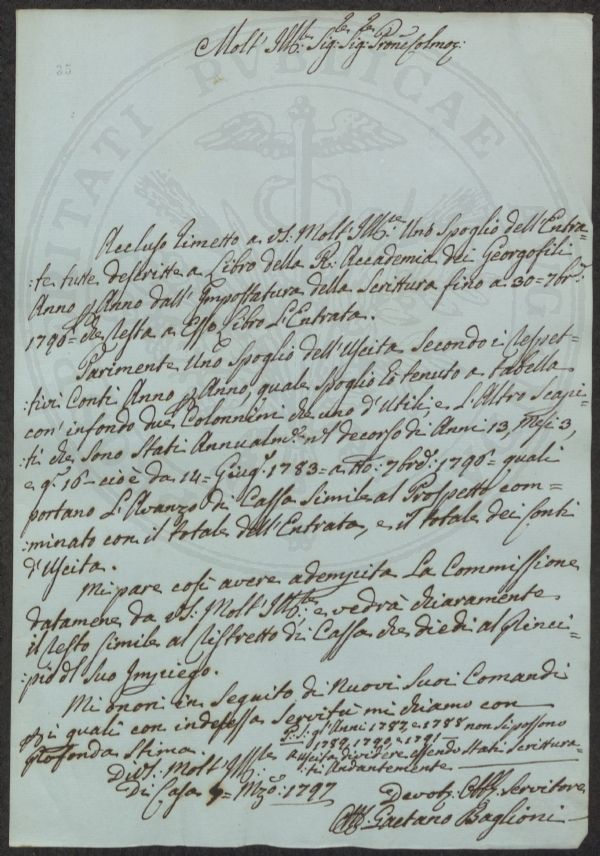 Molt' Ill:re Sig:re Sig:re Prone Colmo:
35
Accluso rimetto a VS: Molt' Ill:re Uno Spoglio dell'Entra-
:te tutte descritte a Libro della R: Accademia dei Georgofili
Anno p Anno dall' Impostatura della Scrittura fino a 30= 7bre:
1796= che resta a Esso Libro L'Entrata.
Parimente Uno Spoglio dell'Uscita Secondo i respet-
:tivi Conti Anno p Anno, quale Spoglio è tenuto a tabella
con' infondo due Colonnini che uno d'Utili, e L'Altro Scapi-
:ti che Sono Stati Annualm:te nel decorso di Anni 13, Mesi 3,
e g: 16- cioè da 14= Giug: 1783= a tto: 7bre: 1796= quali
portano L'Avanzo di Cassa Simile al Prospetto com=
:minato con il totale dell'Entrata, e il totale dei Conti
d'Uscita.
Mi pare così avere adempita La Commissione
datamene da VS: Molt' Ill:re e vedrà chiaramente
il resto Simile al ristretto di Cassa che diedi al Princi-
:pio del Suo Impiego.
Mi onori in Seguito di Nuovi Suoi Comandi
p i quali con indefessa Servitù mi chiamo con
profonda Stima.
P.S. gl'Anni 1787, e 1788 non si possono
1789, 1790 e 1791
a uscita dividere essendo Stati Scrittura-
:ti Andantemente
Di VS: Molt' Ill:re
Di Casa 9= Mzo: 1797
Devot: Obb: Servitore
Gaetano Baglioni